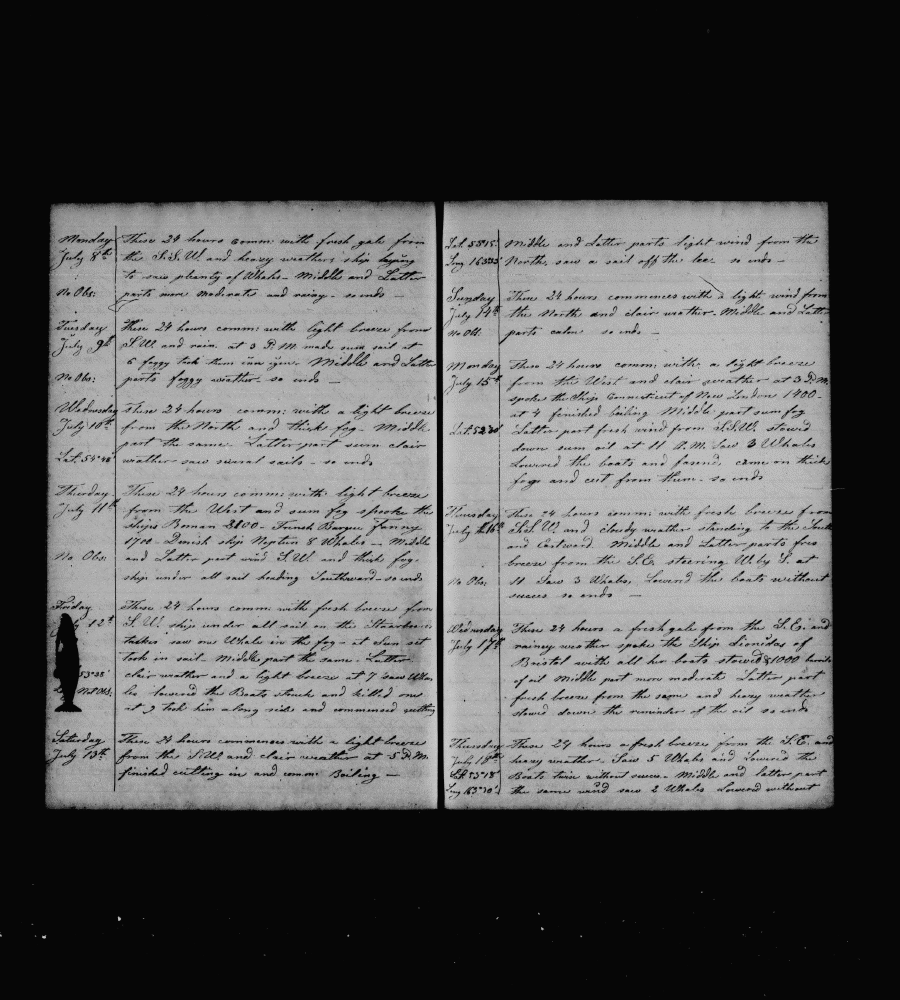 Monday These 24 hours comm: with fresh gale from
July 8th the S.S.W. and heavy weather, ship laying
to saw pleanty of Whales — Middle and Latter
No Obs: parts more moderate and rainy. so ends —
Tuesday These 24 hours comm: with light breeze from
July 9th S.W. and rain. at 3 P.M. made sum sail at
6 foggy took them in. Middle and Latter
No Obs: parts foggy weather. so ends —
Wednesday These 24 hours comm: with a light breeze
July 10th from the North and thick fog. Middle
part the same. Latter part sum clair
Lat. 54°48' weather saw sevral sails — so ends
Thursday These 24 hours comm: with light breeze
July 11th from the West and sum fog spoke the
Ships Roman 2800 - French Barque Fanny
1700 - Danish ship Neptun 8 Whales — Middle
No Obs: and Latter part wind S.W. and thick fog.
ship under all sail heading Southward — so ends
Friday These 24 hours comm: with fresh breeze from
12th S.W. ship under all sail on the
saw one Whale in the fog - at Sun set
took in sail - Middle part the same. Latter
53°35' clair weather and a light breeze at 7 saw
lowered the Boats struck and killed one
at 9 took him along side and commenced cutting
Saturday These 24 hours commences with a light breeze
July 13th from the S.W. and clair weather at 5 P.M.
finished cutting in and comm: Boiling —
Lat. 53°15' Middle and Latter parts light wind from the
North, saw a sail off the lee. so ends —
Sunday These 24 hours commences with a light wind from
July 14th the North and clair weather. Middle and Latter
No Obs: parts calm so ends —
Monday These 24 hours comm: with a light breeze
July 15th from the West and clair weather at 3 P.M.
spoke the Ship Connecticut of New London 1400 -
at 4 finished boiling Middle part sum fog
Lat. 52°30' Latter part fresh wind from S.S.W. stowed
down sum oil at 11 A.M. Saw 3 Whales
Lowered the boats and came on thick
fogs and cut from them. so ends
Tuesday These 24 hours comm: with fresh breeze from
July 16th S.S.W. and cloudy weather standing to the South
and Eastward. Middle and Latter parts fres
breeze from the S.E. steering W. by S. at
No Obs: 11 Saw 3 Whales, Lowered the boats without
succes so ends —
Wednesday These 24 hours a fresh gale from the S.E. and
July 17th rainey weather spoke the Ship of
Bristol with all her boats stowed & 1000 barrels
of oil Middle part more moderate Latter part
fresh breeze from the same and heavy weather
stowed down the reminder of the oil so ends
Thursday These 24 hours a fresh breeze from the S.E. and
July 18th heavy weather. Saw 5 Whales and Lowered the
Lat. 53°18' Boats twice without succes - Middle and latter part
Long 163°10' the same wind saw 2 Whales Lowered without